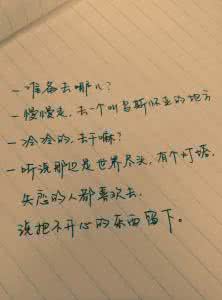 －准备去哪儿？
－慢慢走，去一个叫乌斯怀亚的地方
－冷冷的，去干嘛？
－听说那边是世界尽头，有个灯塔，
失恋的人都喜欢去，
说把不开心的东西留下。